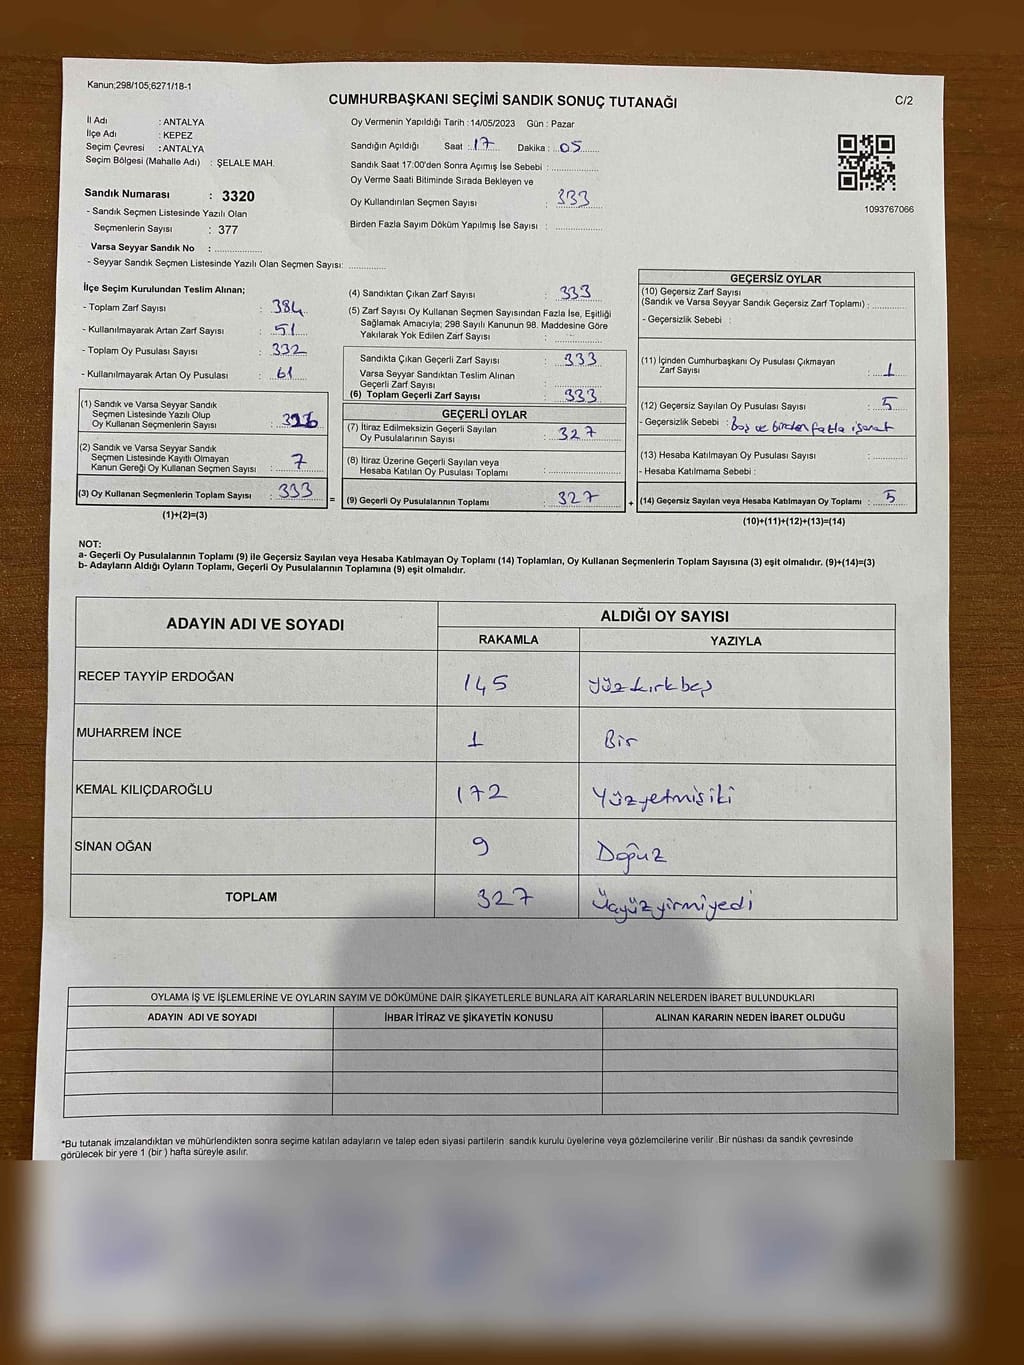 Kanun;298/105;6271/18-1
CUMHURBAŞKANI SEÇİMİ SANDIK SONUÇ TUTANAĞI
C/2
İl Adı : ANTALYA
İlçe Adı : KEPEZ
Seçim Çevresi : ANTALYA
Seçim Bölgesi (Mahalle Adı) : ŞELALE MAH.
Sandık Numarası : 3320
- Sandık Seçmen Listesinde Yazılı Olan
Seçmenlerin Sayısı : 377
Varsa Seyyar Sandık No : ................
- Seyyar Sandık Seçmen Listesinde Yazılı Olan Seçmen Sayısı: ............
Oy Vermenin Yapıldığı Tarih : 14/05/2023 Gün : Pazar
Sandığın Açıldığı Saat : 17 Dakika : 05
Sandık Saat 17:00'den Sonra Açımış İse Sebebi : ................
Oy Verme Saati Bitiminde Sırada Bekleyen ve
Oy Kullandırılan Seçmen Sayısı : 333
Birden Fazla Sayım Döküm Yapılmış İse Sayısı : ................
1093767066
İlçe Seçim Kurulundan Teslim Alınan;
- Toplam Zarf Sayısı : 384
- Kullanılmayarak Artan Zarf Sayısı : 51
- Toplam Oy Pusulası Sayısı : 332
- Kullanılmayarak Artan Oy Pusulası : 61
(1) Sandık ve Varsa Seyyar Sandık
Seçmen Listesinde Yazılı Olup
Oy Kullanan Seçmenlerin Sayısı :
(2) Sandık ve Varsa Seyyar Sandık
Seçmen Listesinde Kayıtlı Olmayan
Kanun Gereği Oy Kullanan Seçmen Sayısı : 7
(3) Oy Kullanan Seçmenlerin Toplam Sayısı : 333
(1)+(2)=(3)
=
(4) Sandıktan Çıkan Zarf Sayısı : 333
(5) Zarf Sayısı Oy Kullanan Seçmen Sayısından Fazla İse, Eşitliği
Sağlamak Amacıyla; 298 Sayılı Kanunun 98. Maddesine Göre
Yakılarak Yok Edilen Zarf Sayısı : ................
Sandıkta Çıkan Geçerli Zarf Sayısı : 333
Varsa Seyyar Sandıktan Teslim Alınan
Geçerli Zarf Sayısı : ................
(6) Toplam Geçerli Zarf Sayısı : 333
GEÇERLİ OYLAR
(7) İtiraz Edilmeksizin Geçerli Sayılan
Oy Pusulalarının Sayısı : 327
(8) İtiraz Üzerine Geçerli Sayılan veya
Hesaba Katılan Oy Pusulası Toplamı : ................
(9) Geçerli Oy Pusulalarının Toplamı : 327
+
GEÇERSİZ OYLAR
(10) Geçersiz Zarf Sayısı
(Sandık ve Varsa Seyyar Sandık Geçersiz Zarf Toplamı) : ............
- Geçersizlik Sebebi :
(11) İçinden Cumhurbaşkanı Oy Pusulası Çıkmayan
Zarf Sayısı : 1
(12) Geçersiz Sayılan Oy Pusulası Sayısı : 5
- Geçersizlik Sebebi : boş ve birden fazla işaret
(13) Hesaba Katılmayan Oy Pusulası Sayısı : ............
- Hesaba Katılmama Sebebi :
(14) Geçersiz Sayılan veya Hesaba Katılmayan Oy Toplamı : 5
(10)+(11)+(12)+(13)=(14)
NOT:
a- Geçerli Oy Pusulalarının Toplamı (9) ile Geçersiz Sayılan veya Hesaba Katılmayan Oy Toplamı (14) Toplamları, Oy Kullanan Seçmenlerin Toplam Sayısına (3) eşit olmalıdır. (9)+(14)=(3)
b- Adayların Aldığı Oyların Toplamı, Geçerli Oy Pusulalarının Toplamına (9) eşit olmalıdır.
ADAYIN ADI VE SOYADI
ALDIĞI OY SAYISI
RAKAMLA YAZIYLA
RECEP TAYYİP ERDOĞAN 145 Yüzkırkbeş
MUHARREM İNCE 1 Bir
KEMAL KILIÇDAROĞLU 172 Yüzyetmişiki
SİNAN OĞAN 9 Doğuz
TOPLAM 327 Üçyüzyirmiyedi
OYLAMA İŞ VE İŞLEMLERİNE VE OYLARIN SAYIM VE DÖKÜMÜNE DAİR ŞİKAYETLERLE BUNLARA AİT KARARLARIN NELERDEN İBARET BULUNDUKLARI
ADAYIN ADI VE SOYADI İHBAR İTİRAZ VE ŞİKAYETİN KONUSU ALINAN KARARIN NEDEN İBARET OLDUĞU
*Bu tutanak imzalandıktan ve mühürlendikten sonra seçime katılan adayların ve talep eden siyasi partilerin sandık kurulu üyelerine veya gözlemcilerine verilir .Bir nüshası da sandık çevresinde
görülecek bir yere 1 (bir ) hafta süreyle asılır.